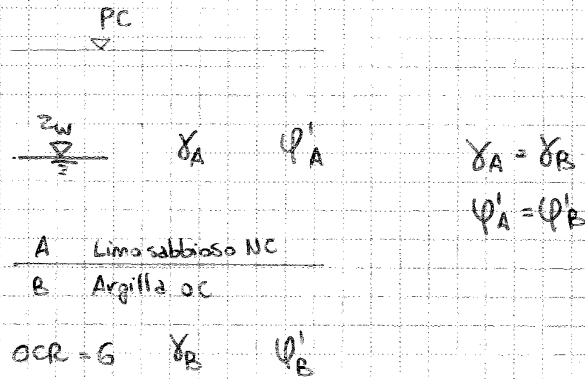 PC
zw γA φ'A γA = γB
φ'A = φ'B
A Limo sabbioso NC
B Argilla OC
OCR = 6 γB φ'B